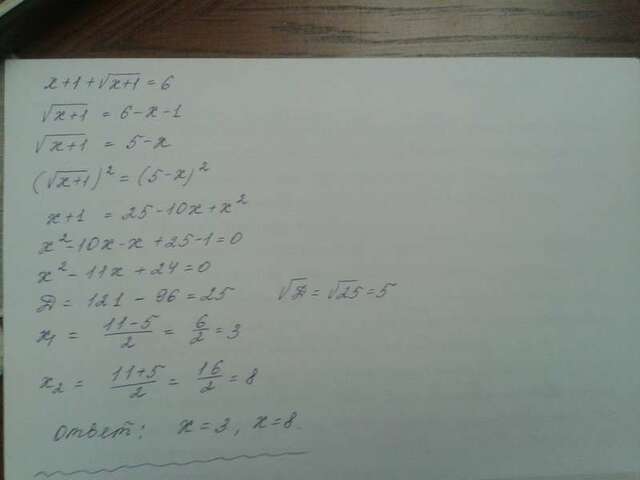 x+1+√(x+1) = 6
√(x+1) = 6-x-1
√(x+1) = 5-x
(√(x+1))² = (5-x)²
x+1 = 25-10x+x²
x²-10x-x+25-1=0
x²-11x+24=0
Д = 121 - 96 = 25 √Д = √25 = 5
x₁ = (11-5)/2 = 6/2 = 3
x₂ = (11+5)/2 = 16/2 = 8
ответ: x=3, x=8.